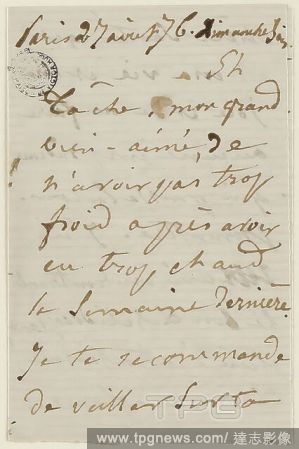 Paris 27 août 76. Dimanche soir
8h
Tâche, mon grand
bien-aimé, de
n'avoir pas trop
froid après avoir
eu trop chaud
la semaine dernière.
Je te recommande
de veiller sur ta
TPG
www.tpgnews.com / 達志影像